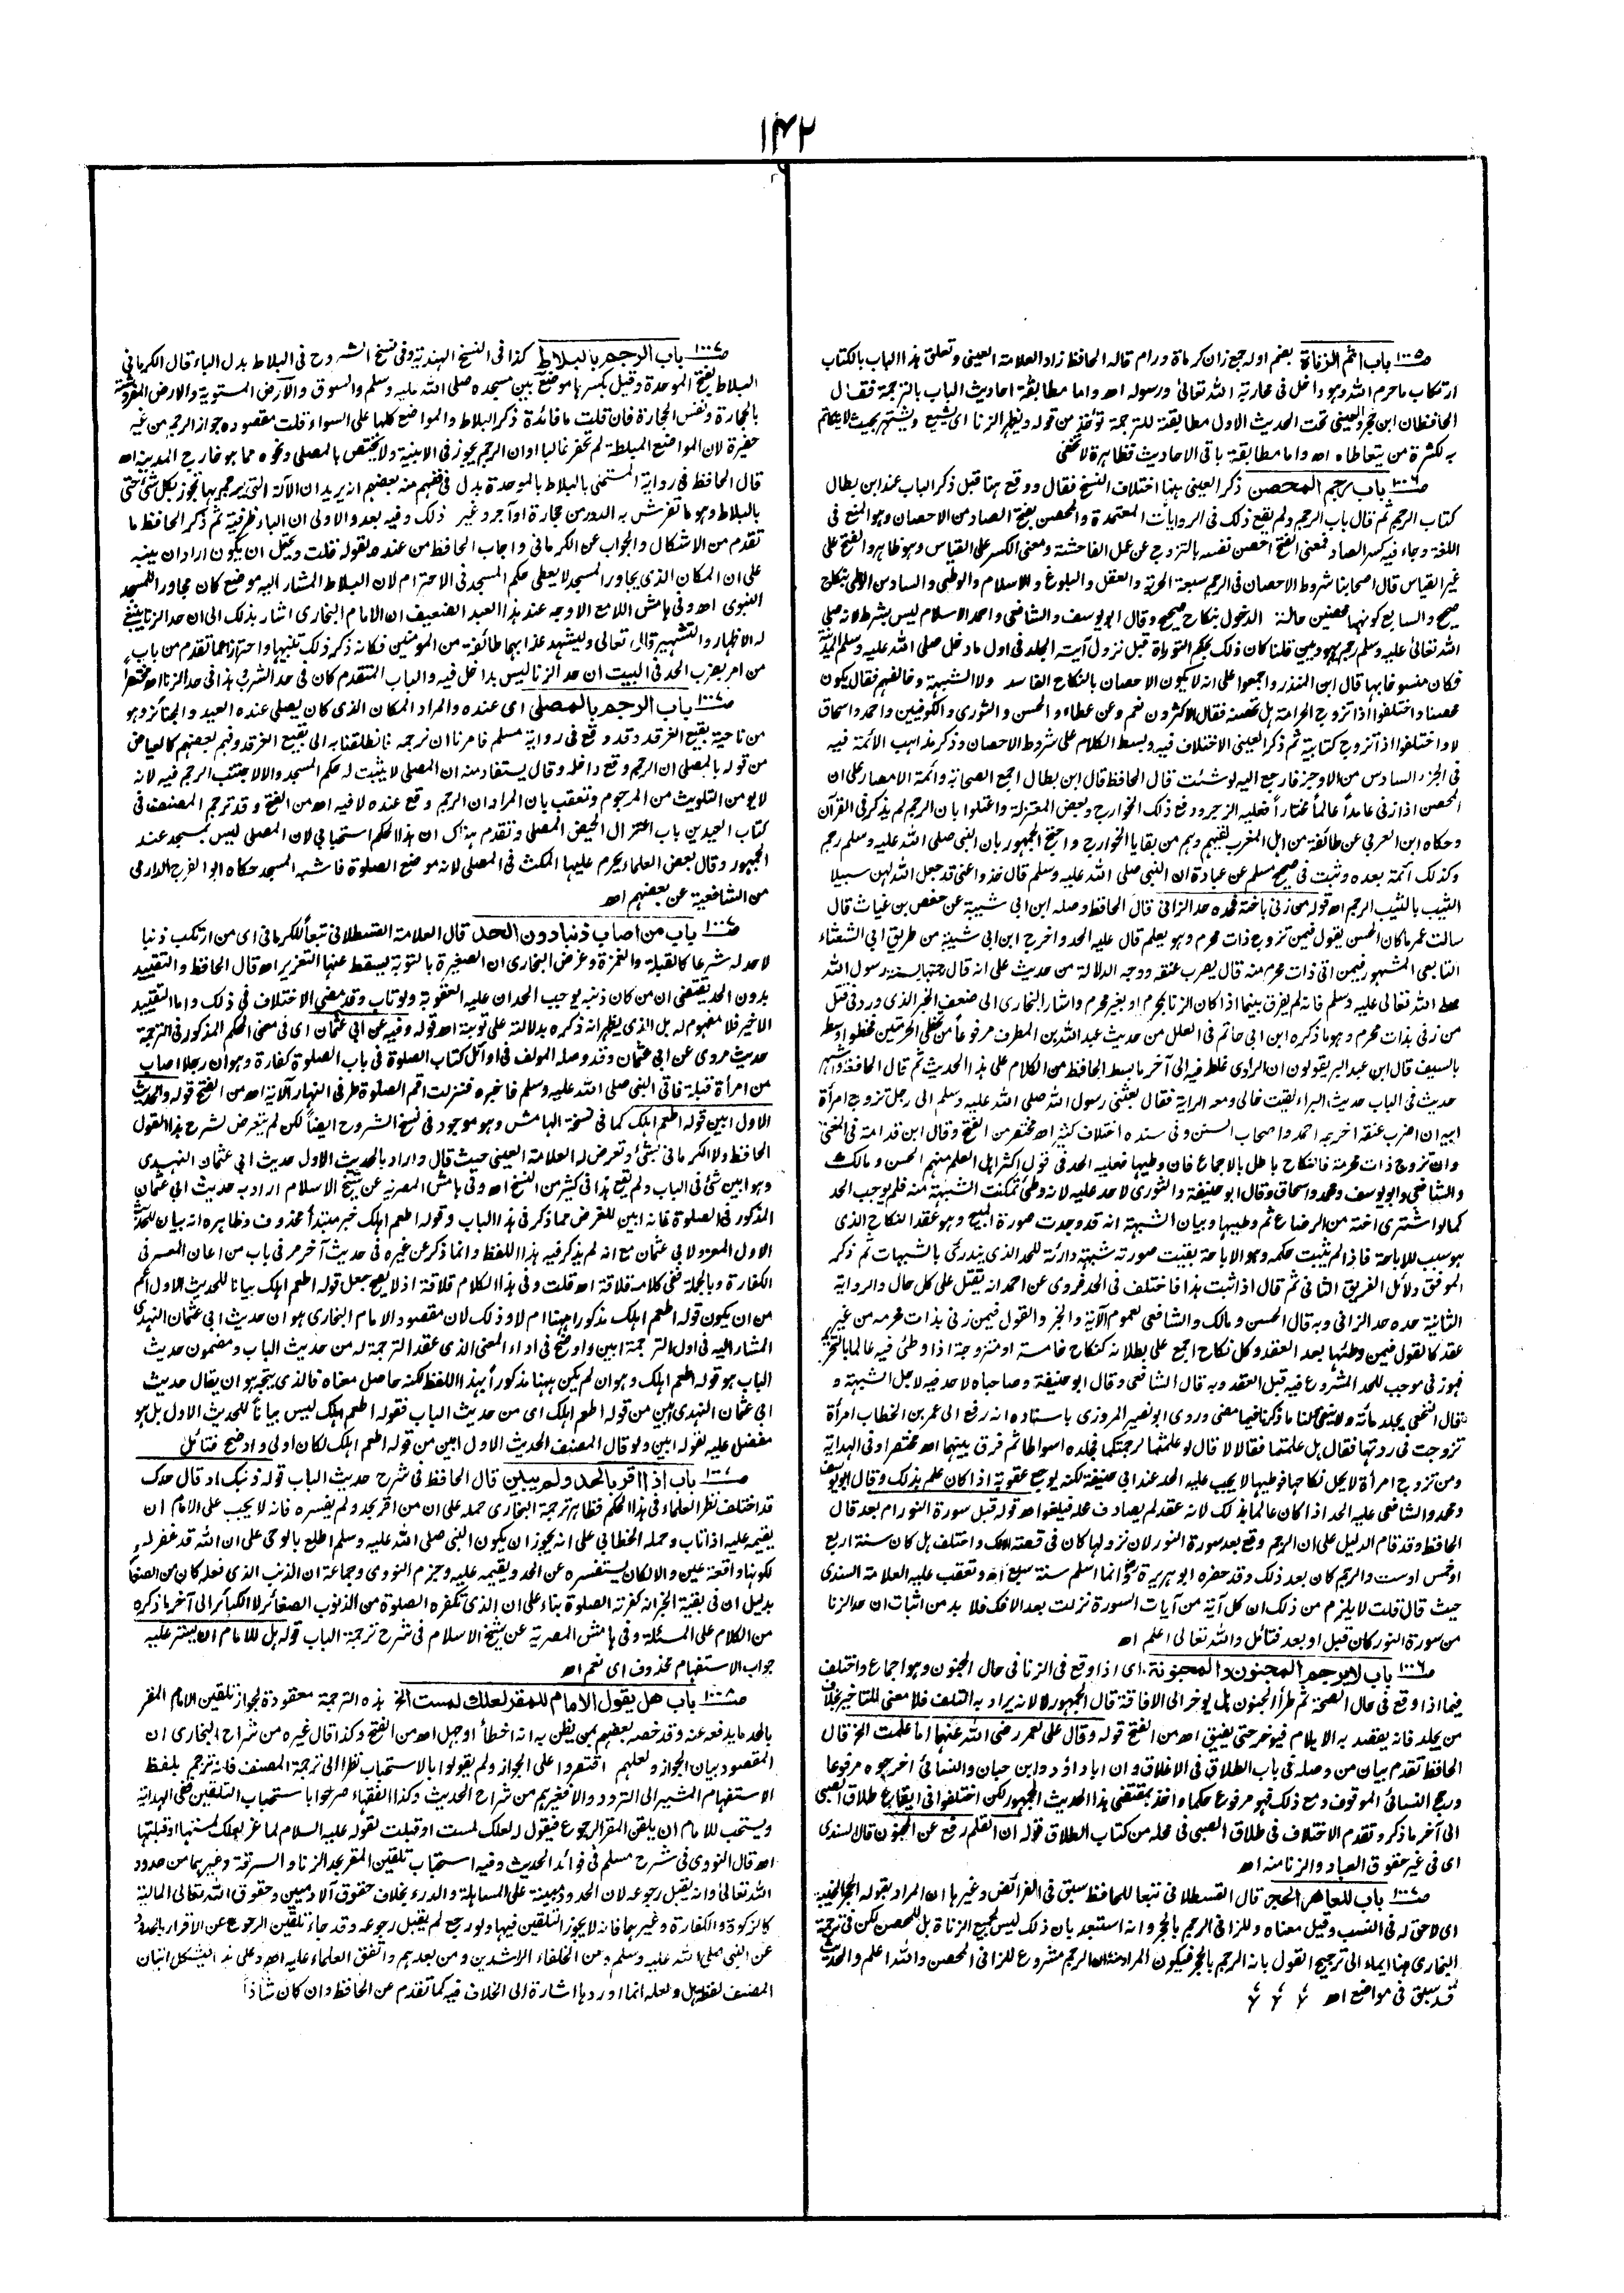 ١٤٢
صـ١٠٠٥ باب اثم الزناة بضم اوله جمع زان كرماة ورام قاله الحافظ زاد العلامة العينى وتعلق هذا الباب بالكتاب
ارتكاب ماحرم الله وهو داخل فى محاربة الله تعالىٰ ورسوله اهـ واما مطابقة احاديث الباب بالترجمة فقال
الحافظان ابن حجر والعينى تحت الحديث الاول مطابقته للترجمة تؤخذ من قوله ويظهر الزنا اى يشيع ويشتهر بحيث لا يتكاتم
به لكثرة من يتعاطاه اهـ واما مطابقة باقى الاحاديث فظاهرة لا تخفى
صـ١٠٠٦ باب رجم المحصن ذكر العينى ههنا اختلاف النسخ فقال ووقع هنا قبل ذكر الباب عند ابن بطال
كتاب الرجم ثم قال باب الرجم ولم يقع ذلك فى الروايات المعتمدة والمحصن بفتح الصاد من الاحصان وهو المنع فى
اللغة وجاء فيه كسر الصاد فمعنى الفتح احصن نفسه بالتزوج عن عمل الفاحشة ومعنى الكسر على القياس وهو ظاهر والفتح على
غير القياس قال اصحابنا شروط الاحصان فى الرجم سبعة الحرية والعقل والبلوغ والاسلام والوطى والسادس الوطى بنكاح
صحيح والسابع كونهما محصنين حالة الدخول بنكاح صحيح وقال ابو يوسف والشافعى واحمد الاسلام ليس بشرط لانه صلى
الله تعالىٰ عليه وسلم رجم يهوديين قلنا كان ذلك بحكم التوراة قبل نزول آية الجلد فى اول ما دخل صلى الله عليه وسلم المدينة
فكان منسوخا بها قال ابن المنذر واجمعوا على انه لا يكون الاحصان بالنكاح الفاسد ولا الشبهة وخالفهم فقال يكون
محصنا واختلفوا اذا تزوج الحر امة هل تحصنه فقال الاكثرون نعم وعن عطاء والحسن والثورى والكوفيين واحمد واسحاق
لا واختلفوا اذا تزوج كتابية ثم ذكر العينى الاختلاف فيه وبسط الكلام على شروط الاحصان وذكر مذاهب الائمة فيه
فى الجزء السادس من الاوجز فارجع اليه لو شئت قال الحافظ قال ابن بطال اجمع الصحابة وائمة الامصار على ان
المحصن اذا زنى عامداً عالماً مختاراً فعليه الرجم ودفع ذلك الخوارج وبعض المعتزلة واعتلوا بان الرجم لم يذكر فى القرآن
وحكاه ابن العربى عن طائفة من اهل المغرب لقيهم وهم من بقايا الخوارج واحتج الجمهور بان النبى صلى الله عليه وسلم رجم
وكذلك أئمة بعده وثبت فى صحيح مسلم عن عبادة ان النبى صلى الله عليه وسلم قال خذوا عنى قد جعل الله لهن سبيلا
الثيب بالثيب الرجم اهـ قوله من زنى باخته فحده حد الزانى قال الحافظ وصله ابن ابى شيبة عن حفص بن غياث قال
سالت عمر ما كان الحسن يقول فيمن تزوج ذات محرم وهو يعلم قال عليه الحد واخرج ابن ابى شيبة من طريق ابى الشعثاء
التابعى المشهور فيمن اتى ذات محرم منه قال يضرب عنقه ووجه الدلالة من حديث على انه قال رجمتها بسنة رسول الله
صلى الله تعالى عليه وسلم فانه لم يفرق بينما اذا كان الزنا بمحرم او بغير محرم واشار البخارى الى ضعف الخبر الذى ورد فى قتل
من زنى بذات محرم وهو ما ذكره ابن ابى حاتم فى العلل من حديث عبد الله بن المطرف مرفوعاً من تخطى الحرمتين فخطوا وسطه
بالسيف قال ابن عبد البر يقولون ان الراوى غلط فيه الى آخر ما بسط الحافظ من الكلام على هذا الحديث ثم قال الحافظ واشهر
حديث فى الباب حديث البراء لقيت خالى ومعه الراية فقال بعثنى رسول الله صلى الله عليه وسلم الى رجل تزوج امرأة
ابيه ان اضرب عنقه اخرجه احمد واصحاب السنن وفى سنده اختلاف كثير اهـ مختصر من الفتح وقال ابن قدامة فى المغنى
وان تزوج ذات محرمة فالنكاح باطل بالاجماع فان وطيها فعليه الحد فى قول اكثر اهل العلم منهم الحسن ومالك
والشافعى وابو يوسف ومحمد واسحاق وقال ابو حنيفة والثورى لا حد عليه لانه وطئ تمكنت الشبهة منه فلم يوجب الحد
كما لو اشترى اخته من الرضاع ثم وطيها وبيان الشبهة انه قد وجدت صورة المبيح وهو عقد النكاح الذى
هو سبب للاباحة فاذا لم يثبت حكمه وهو الاباحة بقيت صورته شبهة دارئة للحد الذى يندرئ بالشبهات ثم ذكر
الموفق دلائل الفريق الثانى ثم قال اذا ثبت هذا فاختلف فى الحد فروى عن احمد انه يقتل على كل حال والرواية
الثانية حده حد الزانى وبه قال الحسن ومالك والشافعى لعموم الآية والخبر والقول فيمن زنى بذات محرمه من غير
عقد كالقول فيمن وطئها بعد العقد وكل نكاح اجمع على بطلانه كنكاح خامسة او متزوجة اذا وطئ فيه عالما بالتحريم
فهو زنى موجب للحد المشروع فيه قبل العقد وبه قال الشافعى وقال ابو حنيفة وصاحباه لا حد فيه لاجل الشبهة و
قال النخعى يجلد مائة ولا ينفى ولنا ما ذكرنا فيما مضى وروى ابو نصر المروزى باسناده انه رفع الى عمر بن الخطاب امرأة
تزوجت فى عدتها فقال هل علمتما فقالا لا قال لو علمتما لرجمتكما فجلده اسواطا ثم فرق بينهما اهـ مختصرا وفى الهداية
ومن تزوج امرأة لا يحل نكاحها فوطيها لا يجب عليه الحد عند ابى حنيفة لكنه يوجع عقوبة اذا كان علم بذلك وقال ابو يوسف
ومحمد والشافعى عليه الحد اذا كان عالما بذلك لانه عقد لم يصادف محله فيلغو اهـ قوله قبل سورة النور ام بعد قال
الحافظ وقد قام الدليل على ان الرجم وقع بعد سورة النور لان نزولها كان فى قصة الافك واختلف هل كان سنة اربع
او خمس او ست والرجم كان بعد ذلك وقد حضره ابو هريرة رض وانما اسلم سنة سبع اهـ وتعقب عليه العلامة السندى
حيث قال قلت لا يلزم من ذلك ان كل آية من آيات السورة نزلت بعد الافك فلا بد من اثبات ان حد الزنا
من سورة النور كان قبل او بعد فتائل والله تعالى اعلم اهـ
صـ١٠٠٦ باب لا يرجم المجنون والمجنونة. اى اذا وقع فى الزنا فى حال الجنون وهو اجماع واختلف
فيما اذا وقع فى حال الصحة ثم طرأ الجنون هل يوخر الى الافاقة قال الجمهور لا لانه يراد به التلف فلا معنى للتاخير بخلاف
من يجلد فانه يقصد به الايلام فيوخر حتى يفيق اهـ من الفتح قوله وقال على لعمر رضى الله عنهما اما علمت الخ قال
الحافظ تقدم بيان من وصله فى باب الطلاق فى الاغلاق وان ابا داؤد وابن حبان والنسائى اخرجوه مرفوعا
ورجح النسائى الموقوف ومع ذلك فهو مرفوع حكما واخذ بمقتضى هذا الحديث الجمهور لكن اختلفوا فى ايقاع طلاق الصبى
الى آخر ما ذكر وتقدم الاختلاف فى طلاق الصبى فى محله من كتاب الطلاق قوله ان القلم رفع عن المجنون قال السندى
اى فى غير حقوق العباد والزنا منه اهـ
صـ١٠٠٧ باب للعاهر الحجر قال القسطلانى تبعا للحافظ سبق فى الفرائض وغيرها ان المراد بقوله الحجر الخيبة
اى لا حق له فى النسب وقيل معناه وللزانى الرجم بالحجر وانه استبعد بان ذلك ليس لجميع الزناة بل للمحصن لكن فى ترجمة
البخارى هنا ايماء الى ترجيح القول بانه الرجم بالحجر فيكون المراد منه ان الرجم مشروع للزانى المحصن والله اعلم والحديث
قد سبق فى مواضع اهـ
صـ١٠٠٧ باب الرجم بالبلاط كذا فى النسخ الهندية وفى نسخ الشروح فى البلاط بدل الباء قال الكرمانى
البلاط بفتح الموحدة وقيل بكسرها موضع بين مسجده صلى الله عليه وسلم والسوق والارض المستوية والارض المفروشة
بالحجارة ونفس الحجارة فان قلت ما فائدة ذكر البلاط والمواضع كلها على السواء قلت مقصوده جواز الرجم من غير
حفيرة لان المواضع المبلطة لم تحفر غالبا او ان الرجم يجوز فى الابنية ولا يختص بالمصلى ونحوه مما هو خارج المدينة اهـ
قال الحافظ فى رواية المستملى بالبلاط بالموحدة بدل فى ففهم منه بعضهم انه يريد ان الآلة التى يرجم بها تجوز بكل شئ حتى
بالبلاط وهو ما تفرش به الدور من حجارة او آجر وغير ذلك وفيه بعد والاولى ان الباء ظرفية ثم ذكر الحافظ ما
تقدم من الاشكال والجواب عن الكرمانى واجاب الحافظ من عنده بقوله قلت ويحتمل ان يكون اراد ان ينبه
على ان المكان الذى يجاور المسجد لا يعطى حكم المسجد فى الاحترام لان البلاط المشار اليه موضع كان مجاور المسجد
النبوى اهـ وفى هامش اللامع الاوجه عند هذا العبد الضعيف ان الامام البخارى اشار بذلك الى ان حد الزنا ينبغى
له الاظهار والتشهير قال الله تعالى وليشهد عذابهما طائفة من المومنين فكانه ذكر ذلك تنبيها واحترازا عما تقدم من باب
من امر بضرب الحد فى البيت ان حد الزنا ليس بداخل فيه والباب المتقدم كان فى حد الشرب هذا فى حد الزنا اهـ مختصرا
صـ١٠٠٧ باب الرجم بالمصلى اى عنده والمراد المكان الذى كان يصلى عنده العيد والجنائز وهو
من ناحية بقيع الغرقد وقد وقع فى رواية مسلم فامرنا ان نرجمه فانطلقنا به الى بقيع الغرقد وفهم بعضهم كالعياض
من قوله بالمصلى ان الرجم وقع داخله وقال يستفاد منه ان المصلى لا يثبت له حكم المسجد والا لاجتنب الرجم فيه لانه
لا يومن التلويث من المرجوم وتعقب بان المراد ان الرجم وقع عنده لا فيه اهـ من الفتح وقد ترجم المصنف فى
كتاب العيدين باب اعتزال الحيض المصلى وتقدم هناك ان هذا الحكم استحبابى لان المصلى ليس بمسجد عند
الجمهور وقال بعض العلماء يحرم عليها المكث فى المصلى لانه موضع الصلوة فاشبه المسجد حكاه ابو الفرج الدارمى
من الشافعية عن بعضهم اهـ
صـ١٠٠٧ باب من اصاب ذنبا دون الحد قال العلامة القسطلانى تبعاً للكرمانى اى من ارتكب ذنبا
لا حد له شرعا كالقبلة والغمزة وغرض البخارى ان الصغيرة بالتوبة يسقط عنها التعزير اهـ قال الحافظ والتقييد
بدون الحد يقتضى ان من كان ذنبه يوجب الحد ان عليه العقوبة ولو تاب وقد مضى الاختلاف فى ذلك واما التقييد
الاخير فلا مفهوم له بل الذى يظهر انه ذكره بدلالته على توبته اهـ قوله وفيه عن ابى عثمان اى فى معنى الحكم المذكور فى الترجمة
حديث مروى عن ابى عثمان وقد وصله المولف فى اوائل كتاب الصلوة فى باب الصلوة كفارة وهو ان رجلا اصاب
من امرأة قبلة فاتى النبى صلى الله عليه وسلم فاخبره فنزلت اقم الصلوة طرفى النهار الآية اهـ من الفتح قوله والحديث
الاول ابين قوله اطعم اهلك كما فى نسخة الهامش وهو موجود فى نسخ الشروح ايضاً لكن لم يتعرض لشرح هذا القول
الحافظ ولا الكرمانى بشئ وتعرض له العلامة العينى حيث قال واراد بالحديث الاول حديث ابى عثمان النهدى
وهو ابين شئ فى الباب ولم يقع هذا فى كثير من النسخ اهـ وفى هامش المصرية عن شيخ الاسلام اراد به حديث ابى عثمان
المذكور فى الصلوة فانه ابين للغرض مما ذكر فى هذا الباب وقوله اطعم اهلك خبر مبتدأ محذوف وظاهره انه بيان للحديث
الاول المعزو لابى عثمان مع انه لم يذكر فيه هذا اللفظ وانما ذكر عن غيره فى حديث آخر مر فى باب من اعان المعسر فى
الكفارة وبالجملة ففى كلامه قلاقة اهـ قلت وفى هذا الكلام قلاقة اذ لا يصح جعل قوله اطعم اهلك بيانا للحديث الاول اعم
من ان يكون قوله اطعم اهلك مذكورا ههنا ام لا وذلك لان مقصود الامام البخارى هو ان حديث ابى عثمان النهدى
المشار اليه فى اول الترجمة ابين واوضح فى اداء المعنى الذى عقد الترجمة له من حديث الباب ومضمون حديث
الباب هو قوله اطعم اهلك وهو ان لم يكن ههنا مذكوراً بهذا اللفظ لكنه حاصل معناه فالذى يتجه هو ان يقال حديث
ابى عثمان النهدى ابين من قوله اطعم اهلك اى من حديث الباب فقوله اطعم اهلك ليس بياناً للحديث الاول بل هو
مفضل عليه لقوله ابين ولو قال المصنف الحديث الاول ابين من قوله اطعم اهلك لكان اولى واوضح فتائل
صـ١٠٠٨ باب اذا اقر بالحد ولم يبين قال الحافظ فى شرح حديث الباب قوله ذنبك او قال حدك
قد اختلف نظر العلماء فى هذا الحكم فظاهر ترجمة البخارى حمله على ان من اقر بحد ولم يفسره فانه لا يجب على الامام ان
يقيمه عليه اذا تاب وحمله الخطابى على انه يجوز ان يكون النبى صلى الله عليه وسلم اطلع بالوحى على ان الله قد غفر له
لكونها واقعة عين والا لكان يستفسره عن الحد ويقيمه عليه وجزم النووى وجماعة ان الذنب الذى فعله كان من الصغائر
بدليل ان فى بقية الخبر انه كفرته الصلوة بناء على ان الذى تكفره الصلوة من الذنوب الصغائر لا الكبائر الى آخر ما ذكره
من الكلام على المسئلة وفى هامش المصرية عن شيخ الاسلام فى شرح ترجمة الباب قوله هل للامام ان يستر عليه
جواب الاستفهام محذوف اى نعم اهـ
صـ١٠٠٨ باب هل يقول الامام للمقر لعلك لمست الخ هذه الترجمة معقودة لجواز تلقين الامام المقر
بالحد ما يدفعه عنه وقد خصه بعضهم بمن يظن به انه اخطأ او جهل اهـ من الفتح وكذا قال غيره من شراح البخارى ان
المقصود بيان الجواز ولعلهم اقتصروا على الجواز ولم يقولوا بالاستحباب نظرا الى ترجمة المصنف فانه ترجم بلفظ
الاستفهام المشير الى التردد والا فغيرهم من شراح الحديث وكذا الفقهاء صرحوا باستحباب التلقين ففى الهداية
ويستحب للامام ان يلقن المقر الرجوع فيقول له لعلك لمست او قبلت لقوله عليه السلام لماعز لعلك لمستها او قبلتها
اهـ قال النووى فى شرح مسلم فى فوائد الحديث وفيه استحباب تلقين المقر بحد الزنا والسرقة وغيرهما من حدود
الله تعالىٰ وانه يقبل رجوعه لان الحدود مبنية على المساهلة والدرء بخلاف حقوق الآدميين وحقوق الله تعالى المالية
كالزكوة والكفارة وغيرهما فانه لا يجوز التلقين فيها ولو رجع لم يقبل رجوعه وقد جاء تلقين الرجوع عن الاقرار بالحدود
عن النبى صلى الله عليه وسلم ومن الخلفاء الراشدين ومن بعدهم واتفق العلماء عليه اهـ وعلى هذا فيشكل اتيان
المصنف لفظ هل ولعله انما اوردها اشارة الى الخلاف فيه كما تقدم عن الحافظ وان كان شاذاً